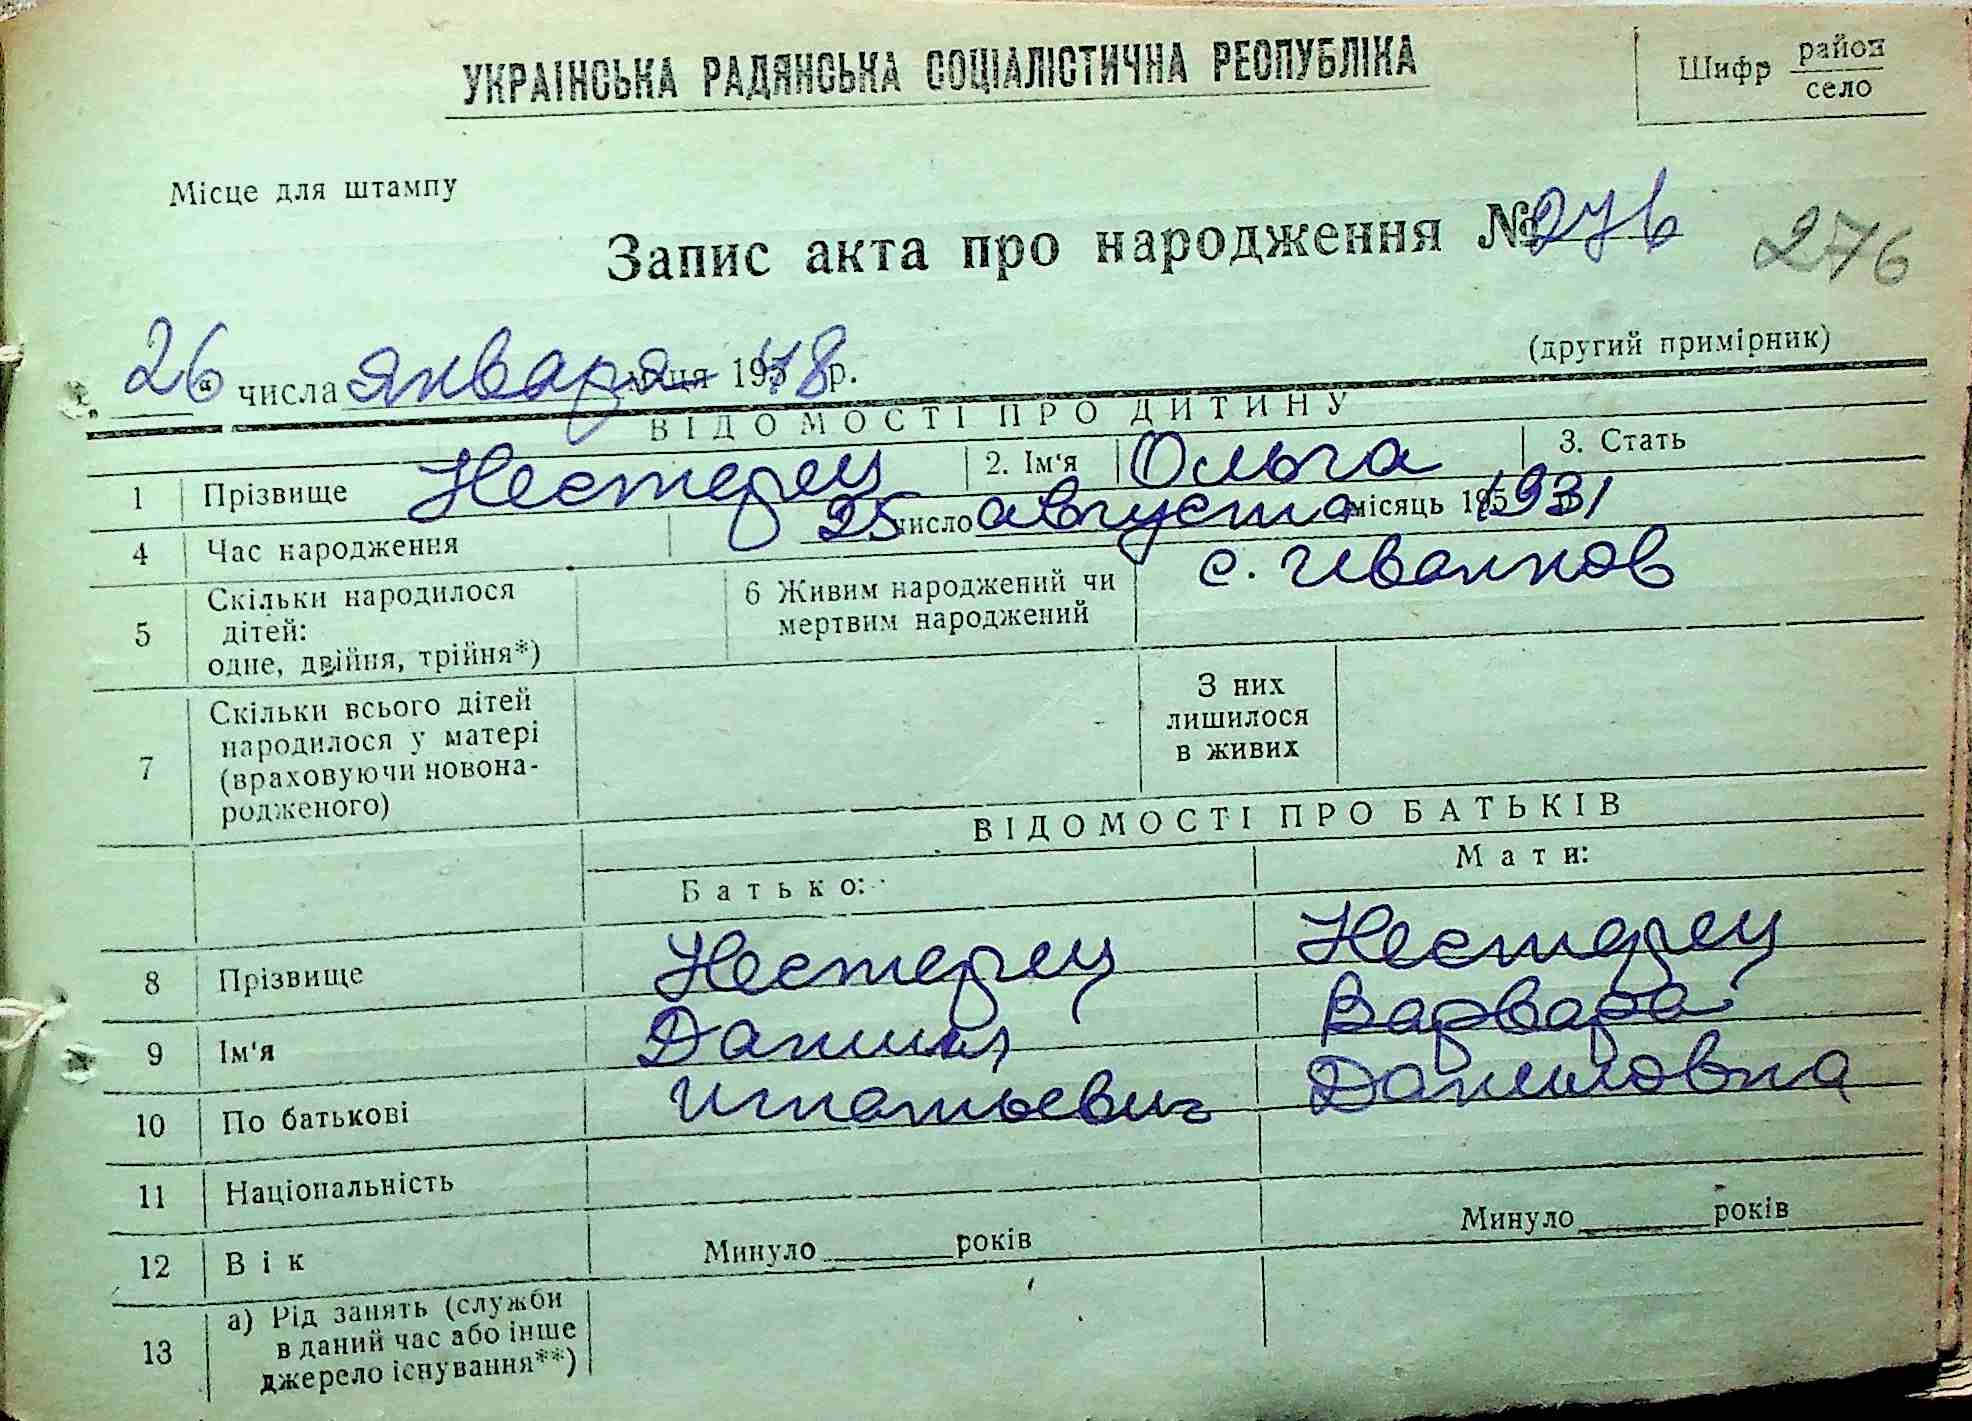 УКРАЇНСЬКА РАДЯНСЬКА СОЦІАЛІСТИЧНА РЕСПУБЛІКА
Шифр район
село
Місце для штампу
Запис акта про народження № 276 276
(другий примірник)
„26“ числа января місяця 1948 р.
ВІДОМОСТІ ПРО ДИТИНУ
1 Прізвище Нестерец 2. Ім'я Ольга 3. Стать
4 Час народження 25 число августа місяць 195 1931
с. Иванков
5 Скільки народилося
дітей:
одне, двійня, трійня*)
6 Живим народжений чи
мертвим народжений
7 Скільки всього дітей
народилося у матері
(враховуючи новона-
родженого)
З них
лишилося
в живих
ВІДОМОСТІ ПРО БАТЬКІВ
Батько: Мати:
8 Прізвище Нестерец Нестерец
9 Ім'я Даниил Варвара
10 По батькові Игнатьевич Даниловна
11 Національність
12 Вік Минуло років Минуло років
13 а) Рід занять (служби
в даний час або інше
джерело існування**)